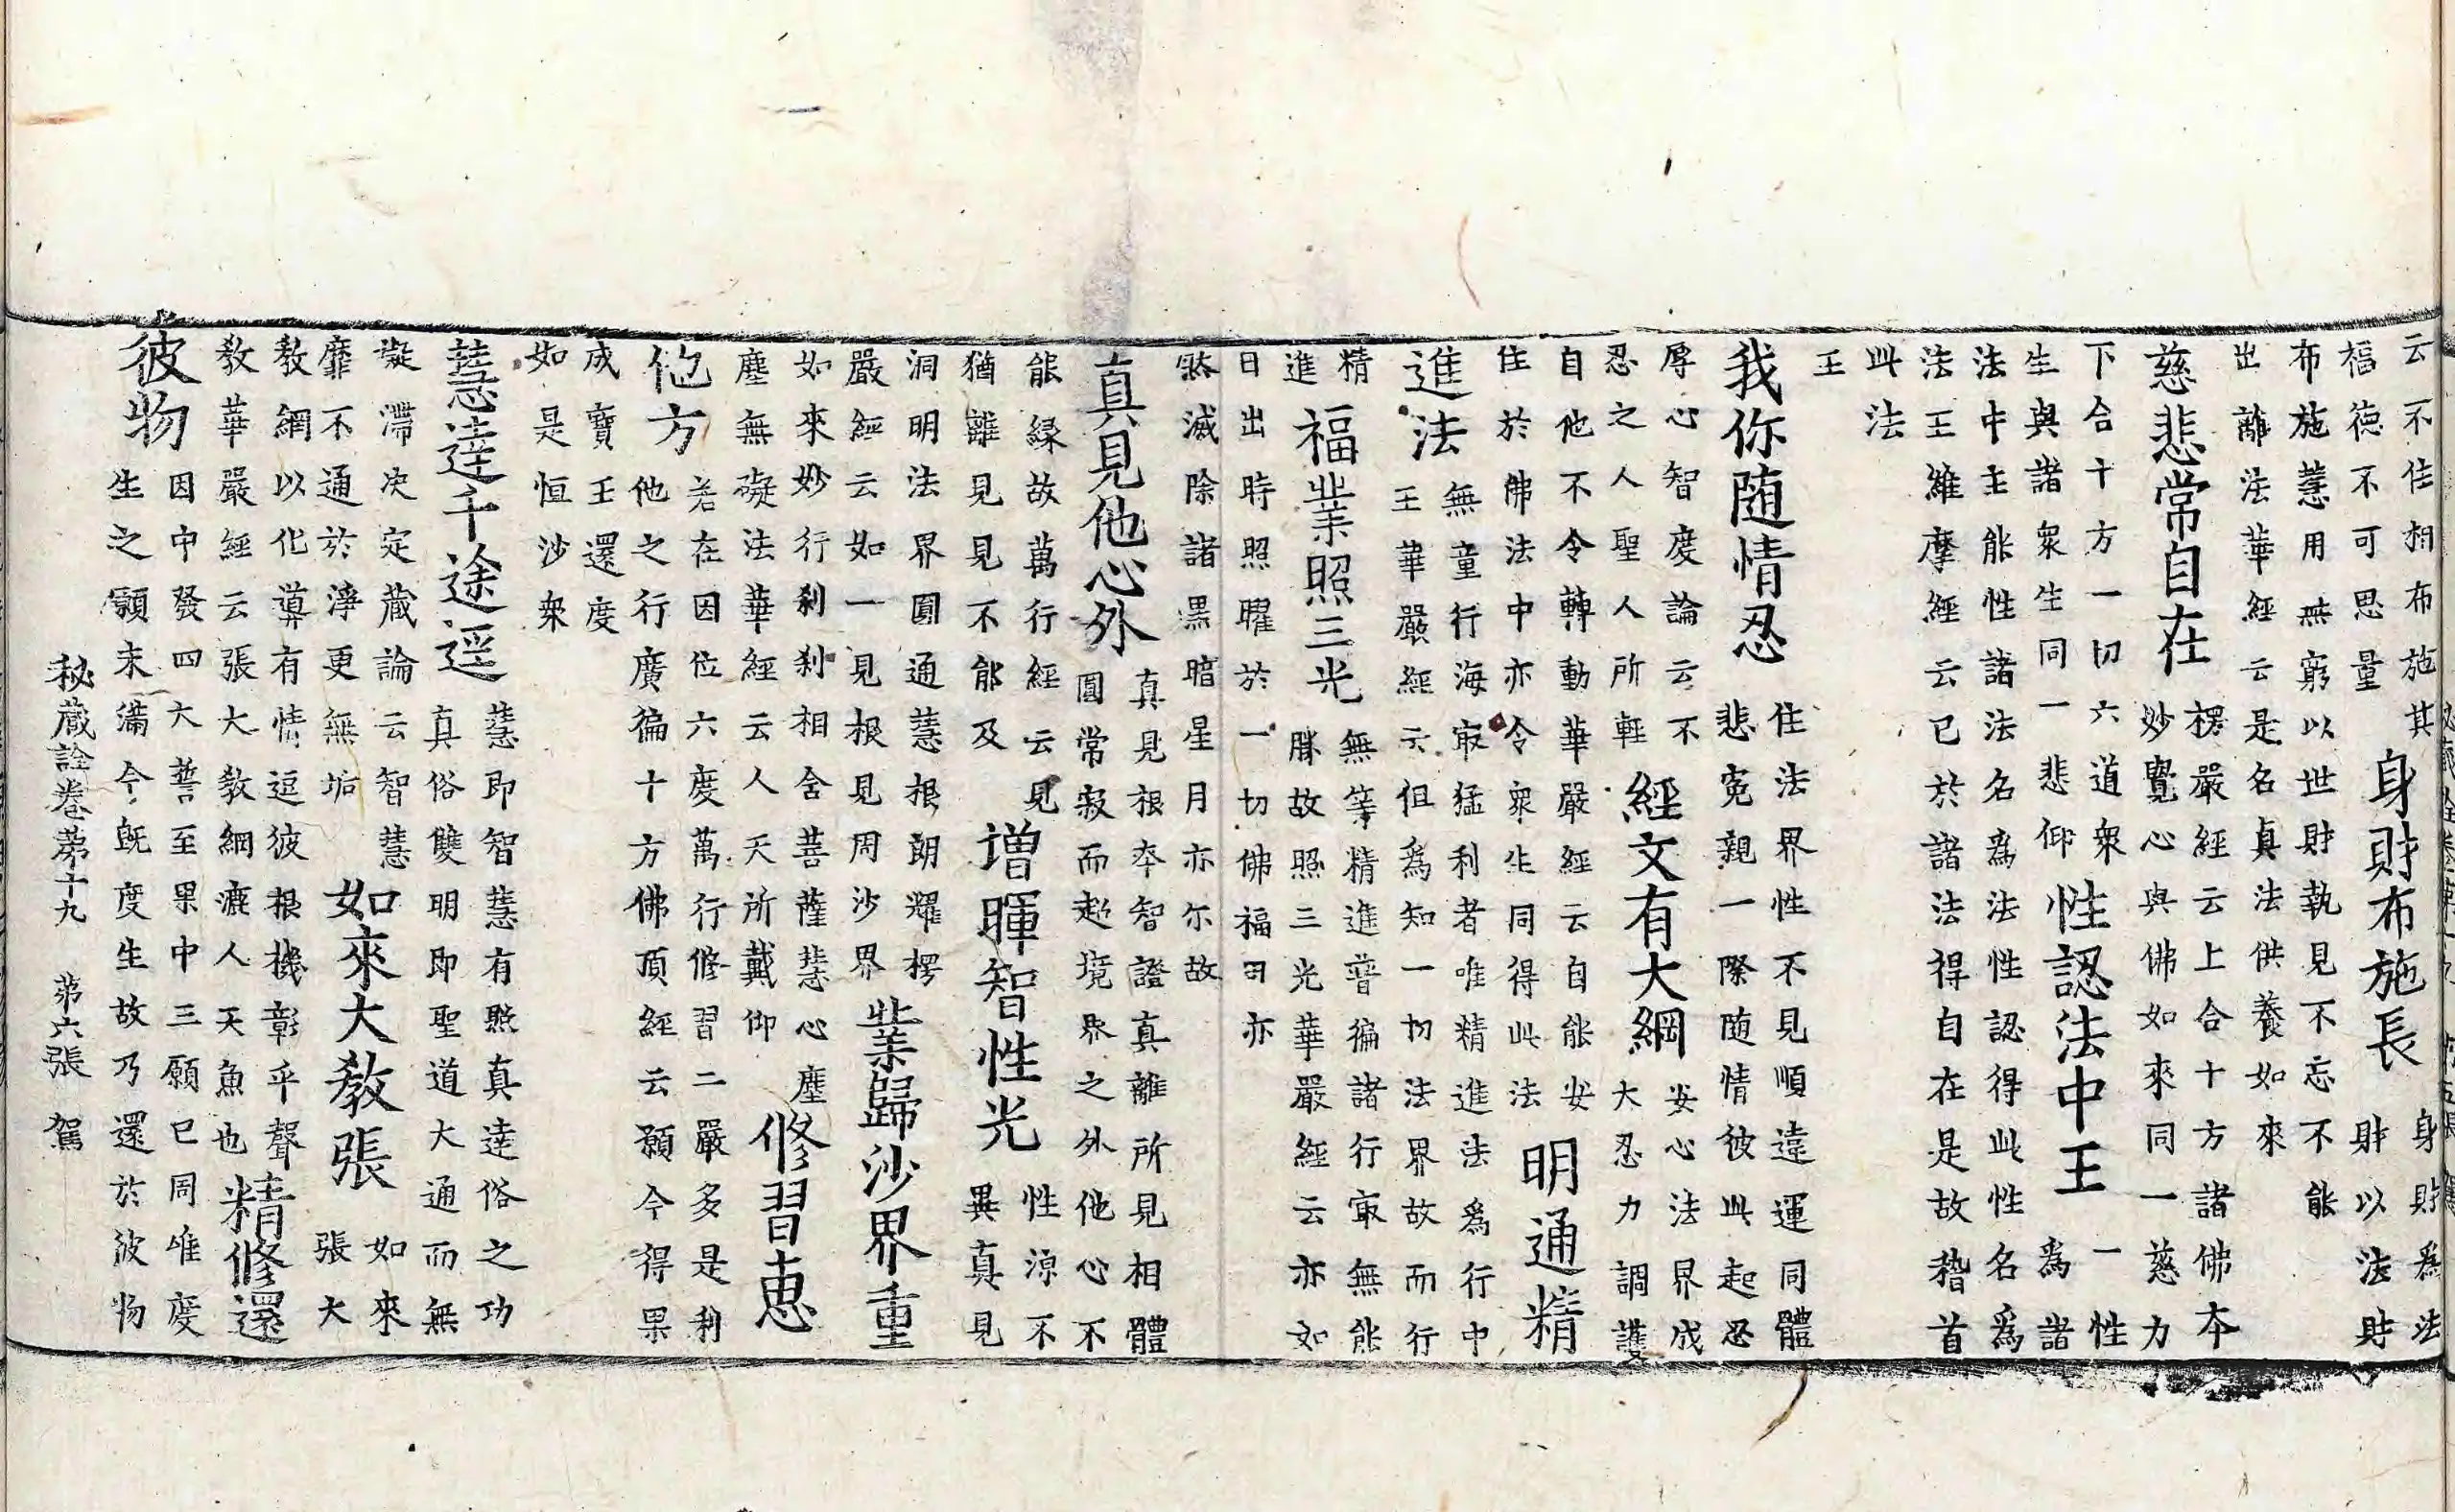 云不住相布施其
福德不可思量
身財布施長
身財爲法
財以法財
布施慧用無窮以世財執見不忘不能
出離法華經云是名真法供養如來
慈悲常自在
楞嚴經云上合十方諸佛本
妙覺心與佛如來同一慈力
下合十方一切六道衆
生與諸衆生同一悲仰
性認法中王
一性
爲諸
法中主能性諸法名爲法性認得此性名爲
法王維摩經云已於諸法得自在是故稽首
此法
王
我你随情忍
住法界性不見順違運同體
悲寃親一際随情彼此起忍
厚心智度論云不
忍之人聖人所輕
經文有大綱
安心法界成
大忍力調護
自他不令轉動華嚴經云自能安
住於佛法中亦令衆生同得此法
明通精
進法
無童行海㝡猛利者唯精進法爲行中
王華嚴經云但爲知一切法界故而行
精
進
福業照三光
無等精進普徧諸行㝡無能
勝故照三光華嚴經云亦如
日出時照曜於一切佛福田亦
然滅除諸黑暗星月亦尔故
真見他心外
真見根本智證真離所見相體
圓常寂而起境界之外他心不
能緣故萬行經云見
猶離見見不能及
增暉智性光
性湶不
異真見
洞明法界圓通慧根朗耀楞
嚴經云如一見根見周沙界
業歸沙界重
如來妙行刹刹相舍菩薩慧心塵
塵無礙法華經云人天所戴仰
修習惠
他方
若在因位六度萬行修習二嚴多是利
他之行廣徧十方佛頂經云願今得果
成寶王還度
如是恒沙衆
慧達千途逕
慧即智慧有照真達俗之功
真俗雙明即聖道大通而無
凝滯决定藏論云智慧
靡不通於淨更無垢
如來大教張
如來
張大
教網以化導有情逗彼根機彰乎聲
教華嚴經云張大教網漉人天魚也
精修還
彼物
因中發四大誓至果中三願已周唯度
生之願未滿今旣度生故乃還於彼物
秘藏詮卷第十九 第六張 駕